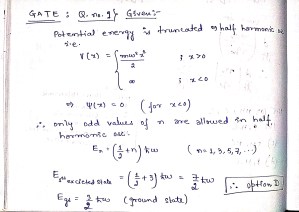 GATE : Q. no. 9} Given:-
Potential energy is truncated → half harmonic osc
i.e.
V(x) = { mω²x² / 2 ; x>0
∞ ; x<0
⇒ ψ(x) = 0 (for x<0)
∴ only odd values of n are allowed in half
harmonic osc:
Eₙ = (1/2 + n) ħω (n = 1, 3, 5, 7, ...)
E 1st excited state = (1/2 + 3) ħω = 7/2 ħω
∴ option D
E gs = 3/2 ħω (ground state)